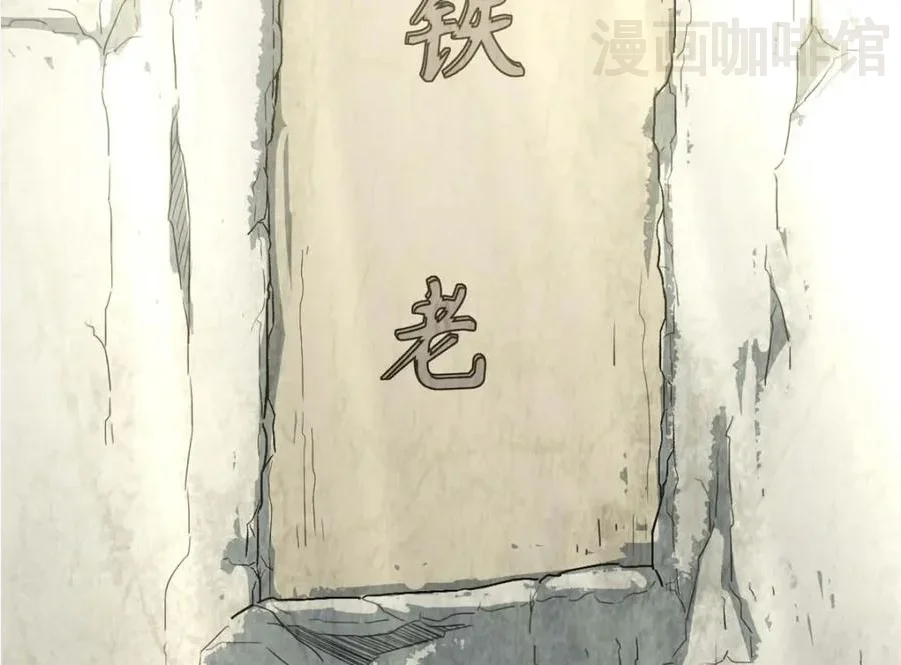 漫画咖啡馆
铁
老